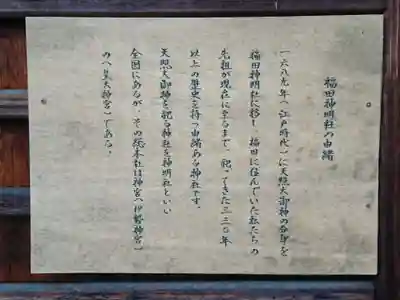 福田神明社の由緒
一六八九年(江戸時代)に天照大御神の分身を
福田神明社に移し、福田に住んでいた私たちの
先祖が現在に至るまで、祀ってきた三三〇年
以上の歴史を持つ由緒ある神社です。
天照大御神を祀る神社を神明社といい
全国にあるが、その総本社は神宮(伊勢神宮)
の(皇大神宮)である。